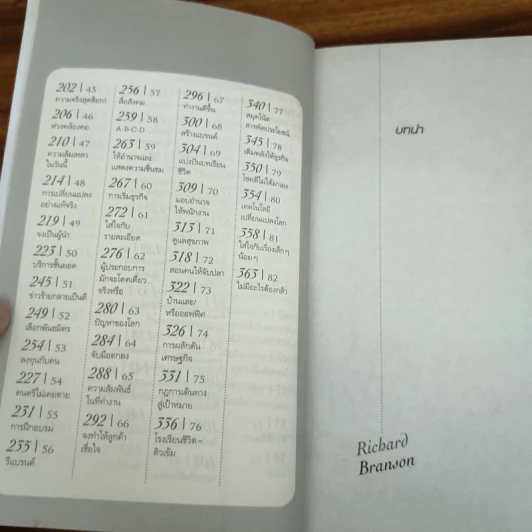 202 | 45
ความจริงสุดช็อก!
206 | 46
ห่วงคล้องคอ
210 | 47
ความล้มเหลว
ในวันนี้
214 | 48
การเปลี่ยนแปลง
อย่างแท้จริง
219 | 49
จงเป็นผู้นำ
223 | 50
บริการชั้นยอด
245 | 51
ข่าวร้ายกลายเป็นดี
249 | 52
เลือกพันธมิตร
254 | 53
ลงทุนกับคน
227 | 54
ดนตรีไม่เคยตาย
231 | 55
การฝึกอบรม
235 | 56
รีแบรนด์
256 | 57
สื่อสังคม
259 | 58
A-B-C-D
263 | 59
ให้อำนาจและ
แสดงความชื่นชม
267 | 60
การเริ่มธุรกิจ
272 | 61
ใส่ใจกับ
รายละเอียด
276 | 62
ผู้ประกอบการ
มักจะโดดเดี่ยว...
จริงหรือ
280 | 63
ปัญหาของโลก
284 | 64
จับมือตกลง
288 | 65
ความสัมพันธ์
ในที่ทำงาน
292 | 66
จงทำให้ลูกค้า
เชื่อใจ
296 | 67
ทำงานดีขึ้น
300 | 68
สร้างแบรนด์
304 | 69
แบ่งปันบทเรียน
ชีวิต
309 | 70
มอบอำนาจ
ให้พนักงาน
313 | 71
ดูแลสุขภาพ
318 | 72
สอนคนให้จับปลา
322 | 73
บ้านและ/
หรือออฟฟิศ
326 | 74
การผลักดัน
เศรษฐกิจ
331 | 75
กฎการเดินทาง
สู่เป้าหมาย
336 | 76
โรงเรียนชีวิต –
ติวเข้ม
340 | 77
สมุดโน้ต
สารพัดประโยชน์
345 | 78
เติมพลังให้ธุรกิจ
350 | 79
โชคดีไม่ได้มาเอง
354 | 80
เทคโนโลยี
เปลี่ยนแปลงโลก
358 | 81
ใส่ใจกับเรื่องเล็กๆ
น้อยๆ
363 | 82
ไม่มีอะไรต้องกลัว
บทนำ
Richard
Branson